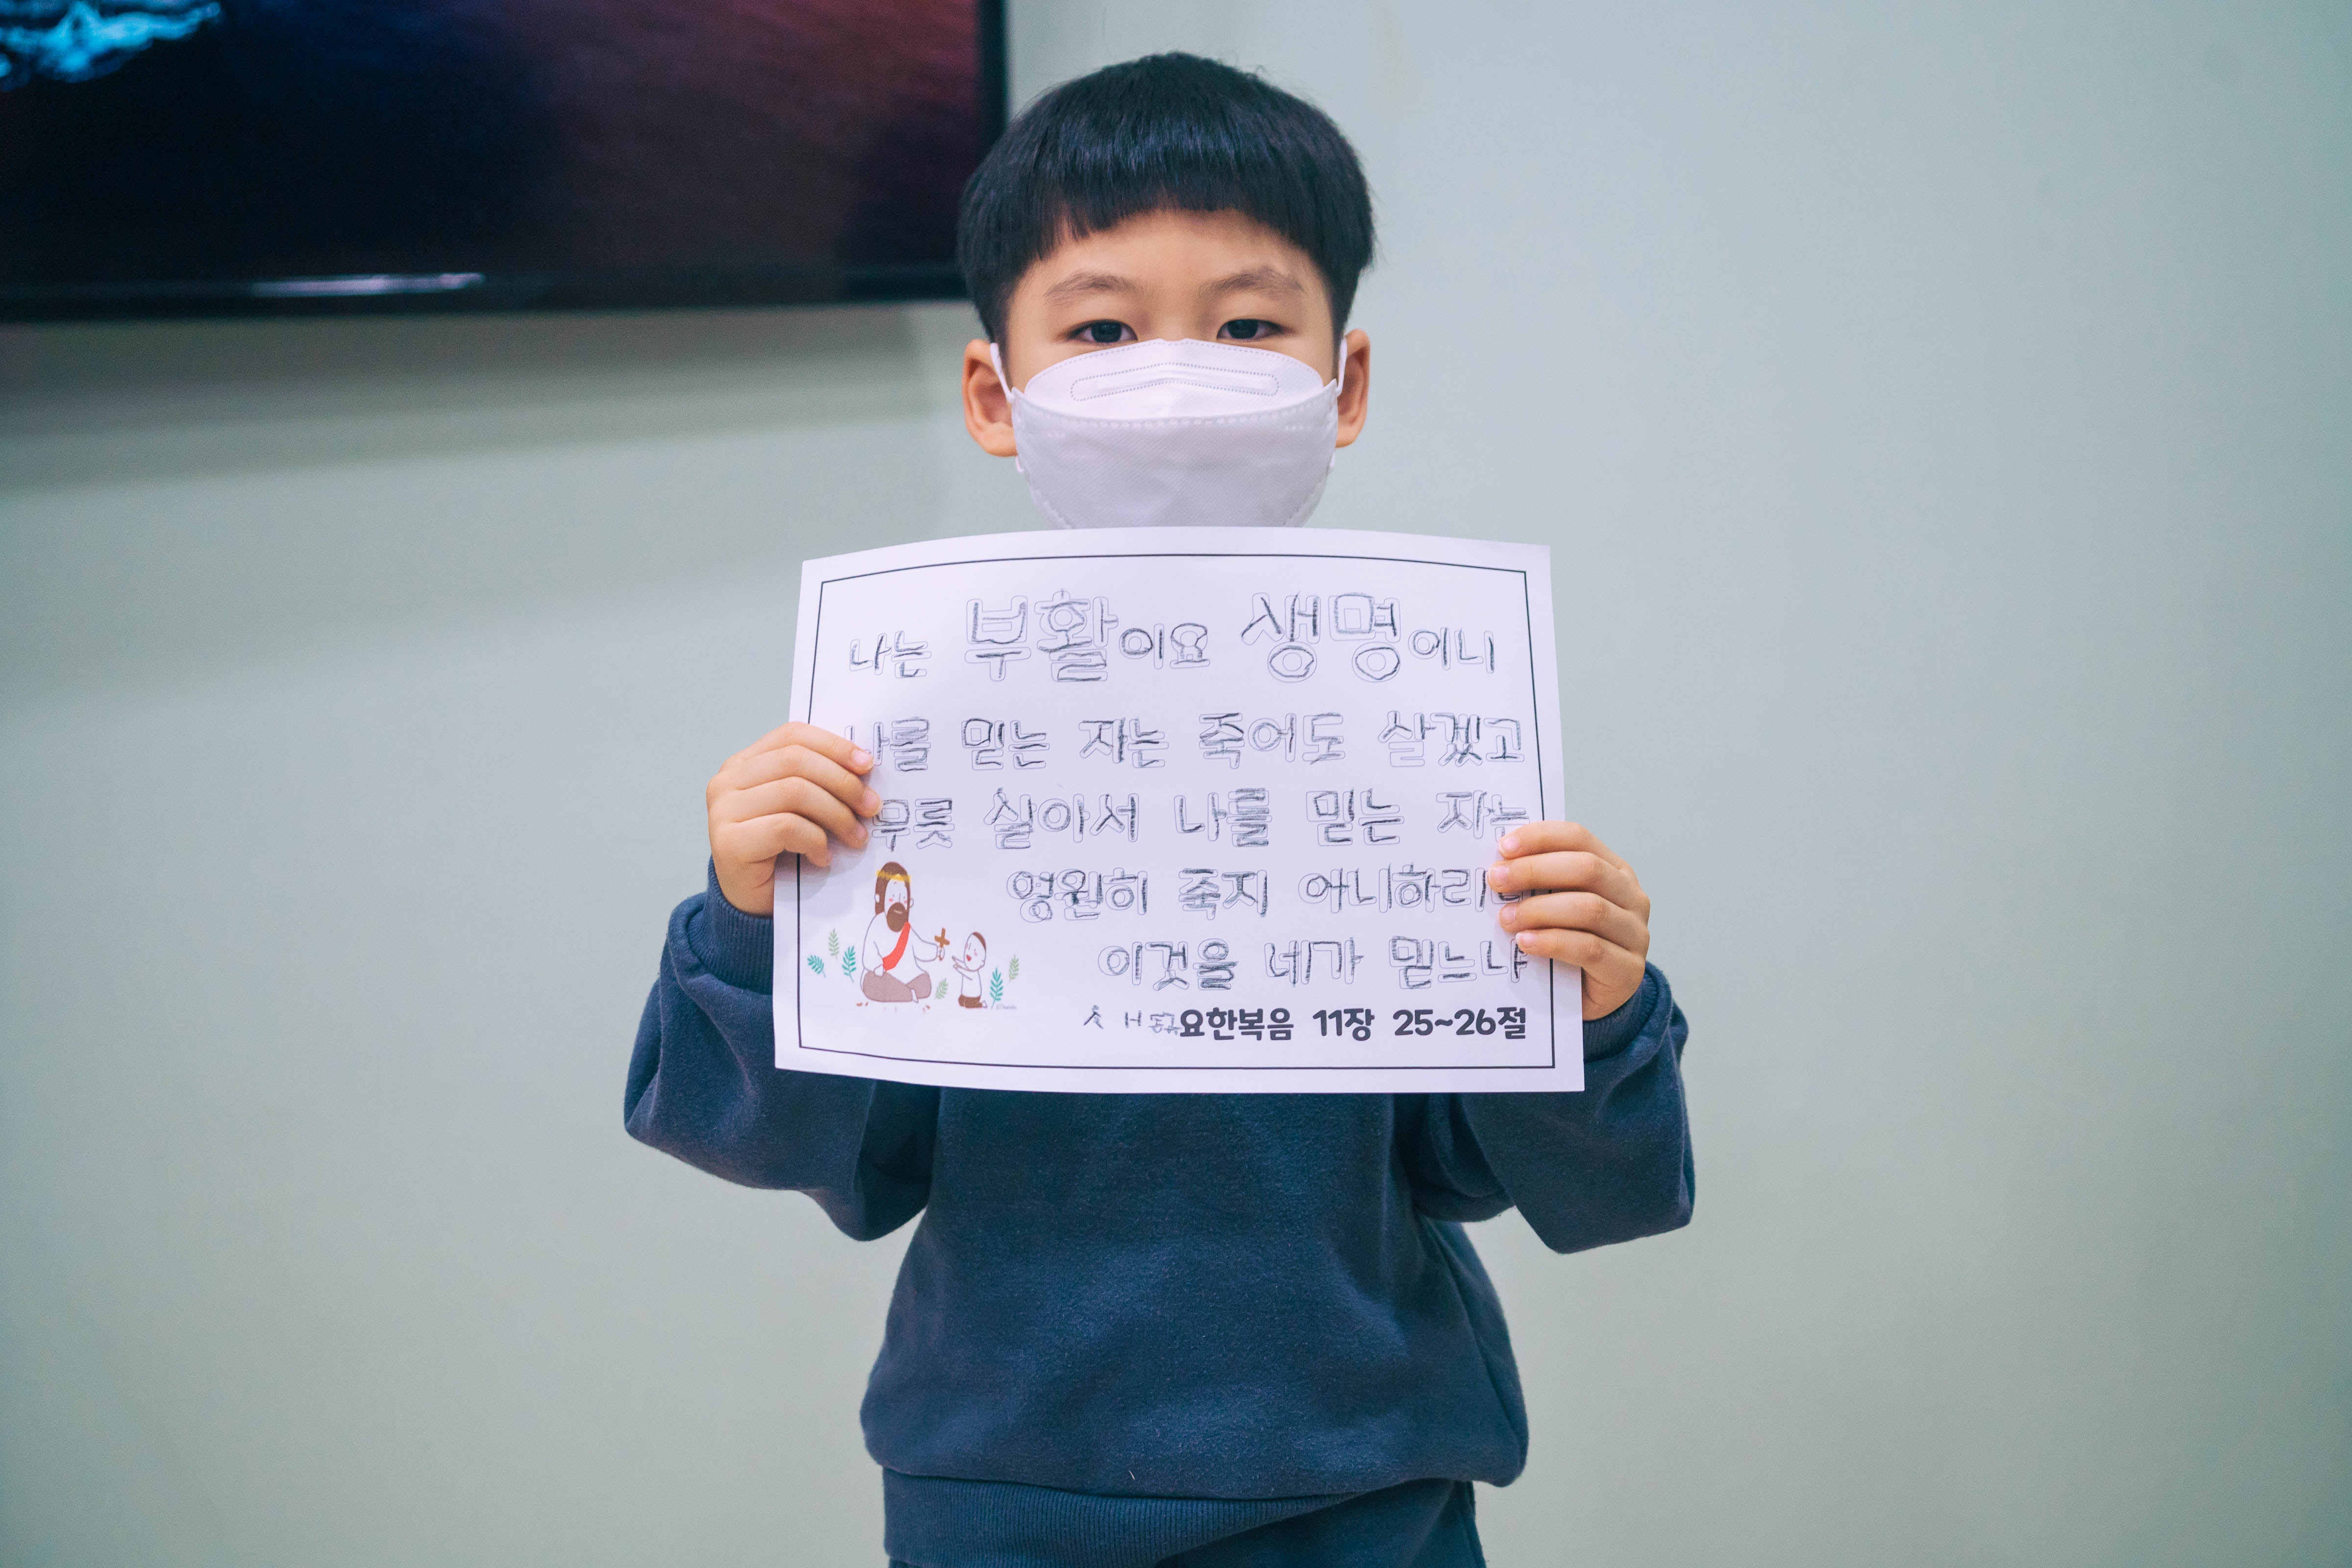 나는 부활이요 생명이니
나를 믿는 자는 죽어도 살겠고
무릇 살아서 나를 믿는 자는
영원히 죽지 아니하리니
이것을 네가 믿느냐
요한복음 11장 25~26절